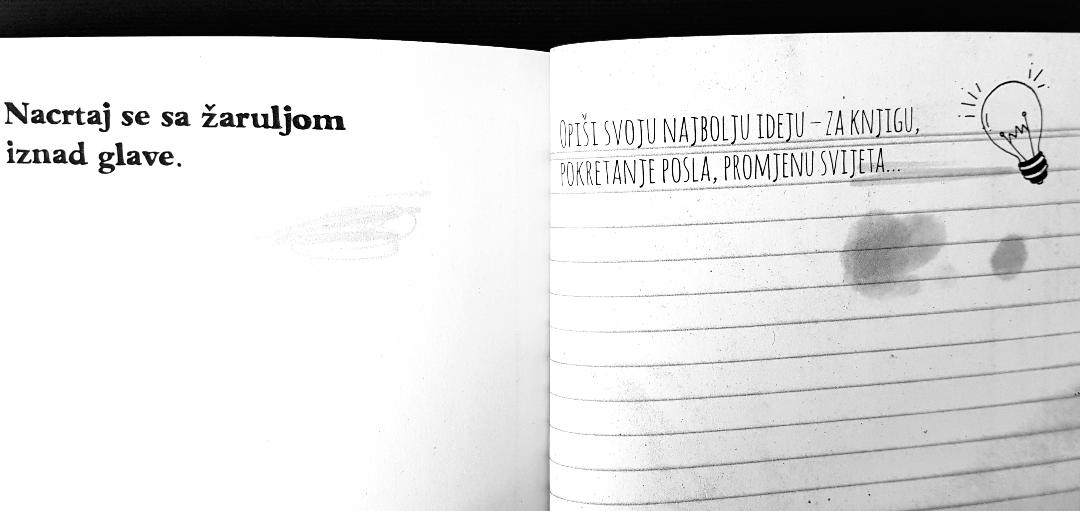 Nacrtaj se sa žaruljom
iznad glave.
OPIŠI SVOJU NAJBOLJU IDEJU – ZA KNJIGU,
POKRETANJE POSLA, PROMJENU SVIJETA...